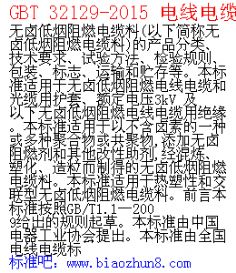 GBT 32129-2015 电线电缆
无卤低烟阻燃电缆料(以下简称无
卤低烟阻燃电缆料)的产品分类、
技术要求、试验方法、检验规则、
包装、标志、运输和贮存等。本标
准适用于无卤低烟阻燃电线电缆和
光缆用护套、额定电压3kV 及
以下无卤低烟阻燃电线电缆用绝缘
。本标准适用于以不含卤素的一种
或多种聚合物或共聚物,添加无卤
阻燃剂和其他改性助剂,经混炼、
塑化、造粒而制得的无卤低烟阻燃
电缆料。本标准适用于热塑性和交
联型无卤低烟阻燃电缆料。 前言本
标准按照GB/T1.1—200
9给出的规则起草。本标准由中国
电器工业协会提出。本标准由全国
电线电缆标
标准吧:www.biaozhun8.com